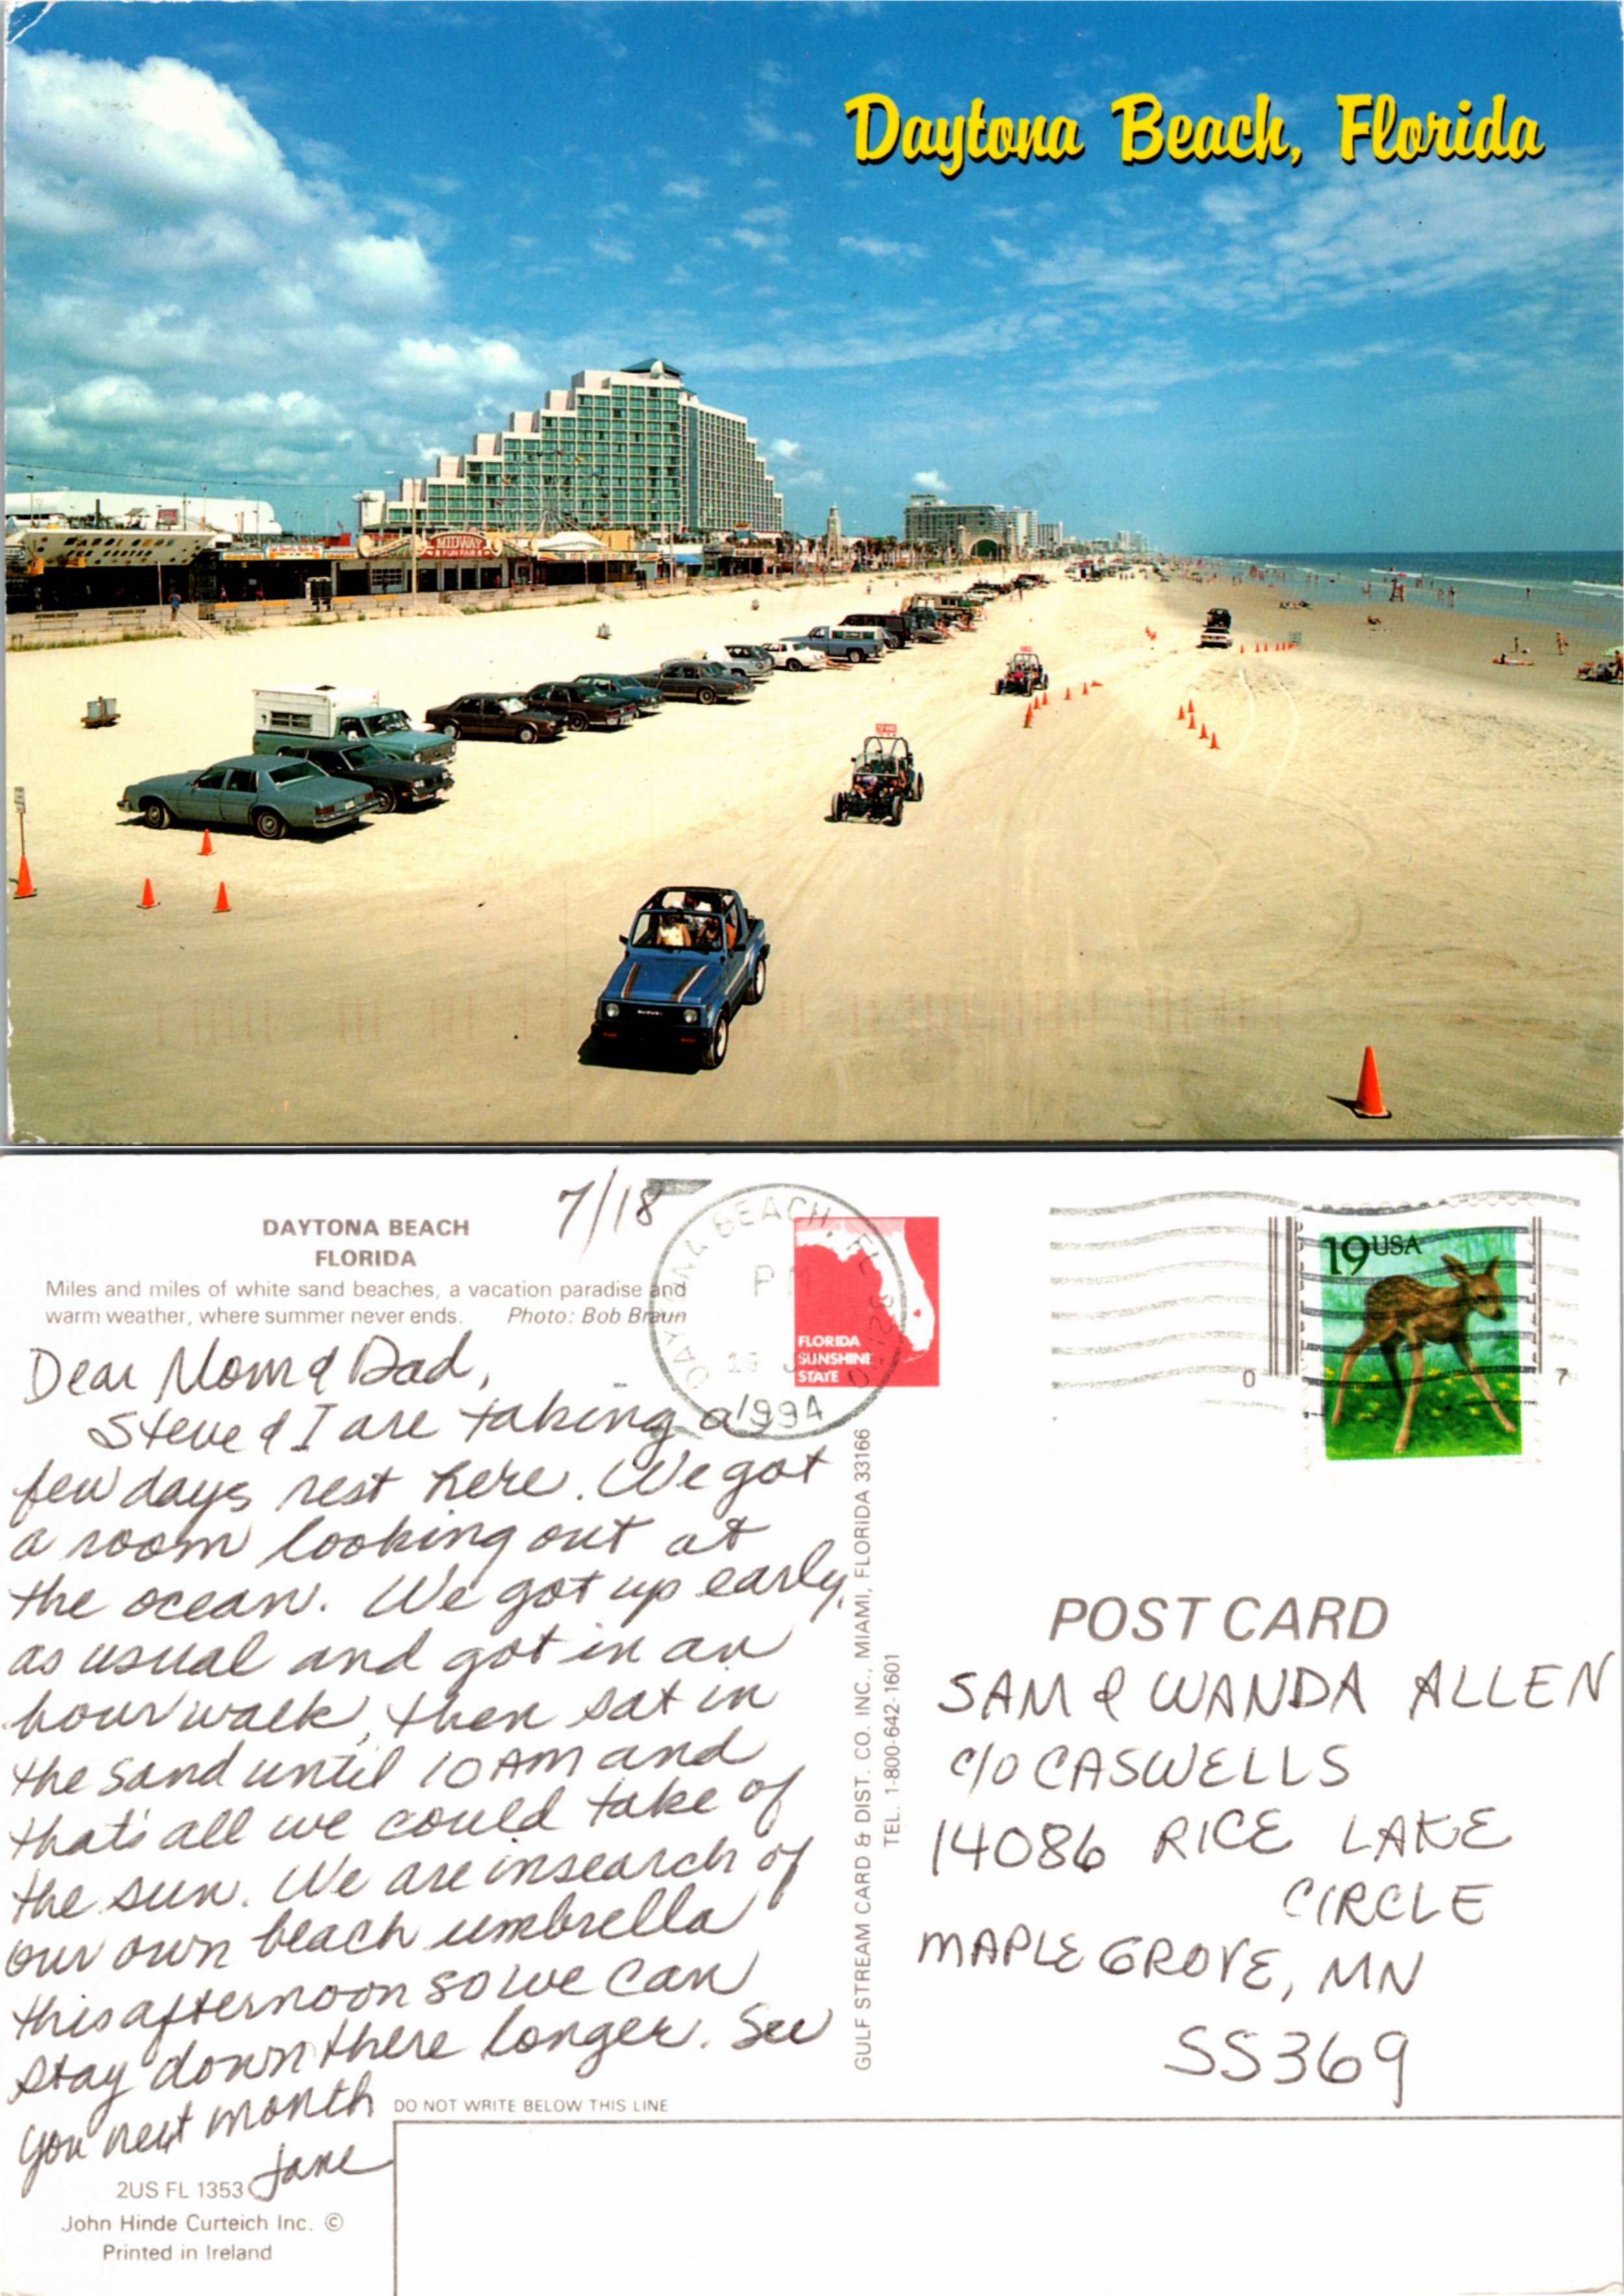 Daytona Beach, Florida
MIDWAY
FUN FAIR
SUZUKI
7/18
DAYTONA BEACH
FLORIDA
Miles and miles of white sand beaches, a vacation paradise and
warm weather, where summer never ends. Photo: Bob Braun
DAYTONA BEACH, FL
PM
1994
FLORIDA
SUNSHINE
STATE
19 USA
0 7
Dear Mom & Dad,
Steve & I are taking a
few days rest here. We got
a room looking out at
the ocean. We got up early,
as usual and got in an
hour walk, then sat in
the sand until 10 AM and
that's all we could take of
the sun. We are in search of
our own beach umbrella
this afternoon so we can
stay down there longer. See
you next month
Jane
GULF STREAM CARD & DIST. CO. INC., MIAMI, FLORIDA 33166
TEL. 1-800-642-1601
POST CARD
SAM & WANDA ALLEN
C/O CASWELLS
14086 RICE LAKE
CIRCLE
MAPLE GROVE, MN
55369
DO NOT WRITE BELOW THIS LINE
2US FL 1353
John Hinde Curteich Inc. ©
Printed in Ireland